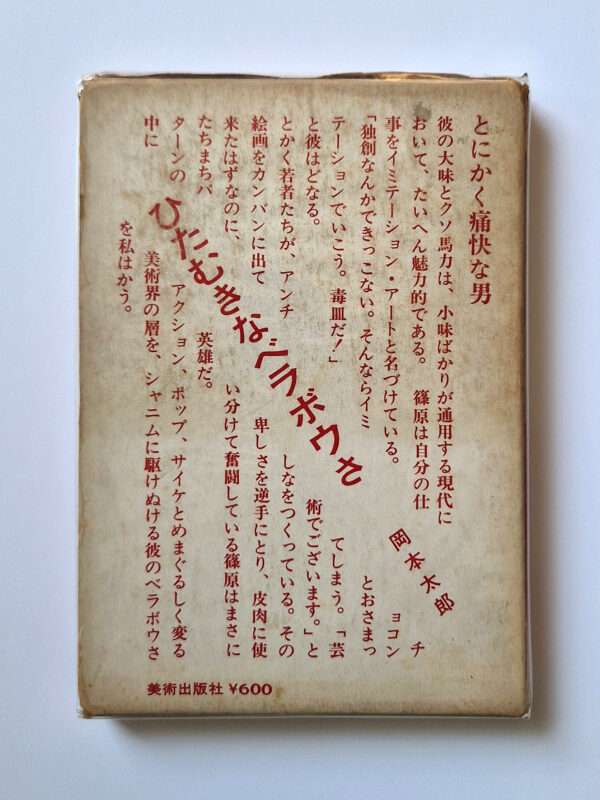 とにかく痛快な男
彼の大味とクソ馬力は、小味ばかりが通用する現代に
おいて、たいへん魅力的である。　篠原は自分の仕
事をイミテーション・アートと名づけている。
「独創なんかできっこない。そんならイミ
テーションでいこう。毒皿だ！」
と彼はどなる。
とかく若者たちが、アンチ
絵画をカンバンに出て
来たはずなのに、
たちまちパ
ターンの
中に
ひたむきなベラボウさ
岡本太郎
チ
ョコン
とおさまっ
てしまう。「芸
術でございます。」と
しなをつくっている。その
卑しさを逆手にとり、皮肉に使
い分けて奮闘している篠原はまさに
英雄だ。
アクション、ポップ、サイケとめまぐるしく変る
美術界の層を、シャニムに駆けぬける彼のベラボウさ
を私はかう。
美術出版社 ¥600